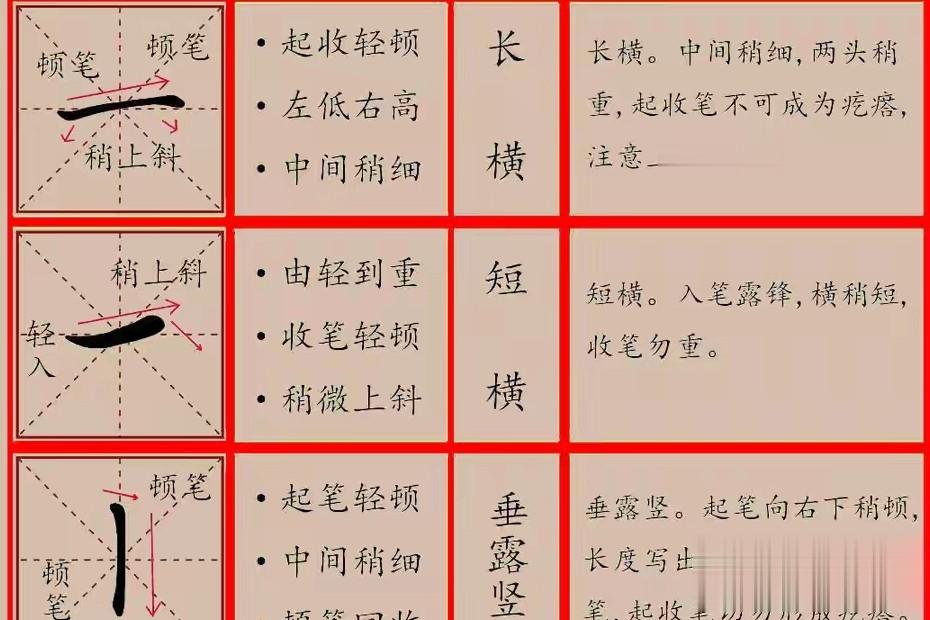 顿笔
顿笔
稍上斜
• 起收轻顿
• 左低右高
• 中间稍细
长
横
长横。中间稍细,两头稍
重,起收笔不可成为疙瘩,
注意
稍上斜
轻
入
• 由轻到重
• 收笔轻顿
• 稍微上斜
短
横
短横。入笔露锋,横稍短,
收笔勿重。
顿笔
顿
笔
• 起笔轻顿
• 中间稍细
• 顿笔回收
垂
露
竖
垂露竖。起笔向右下稍顿,
长度写出
笔,起收笔